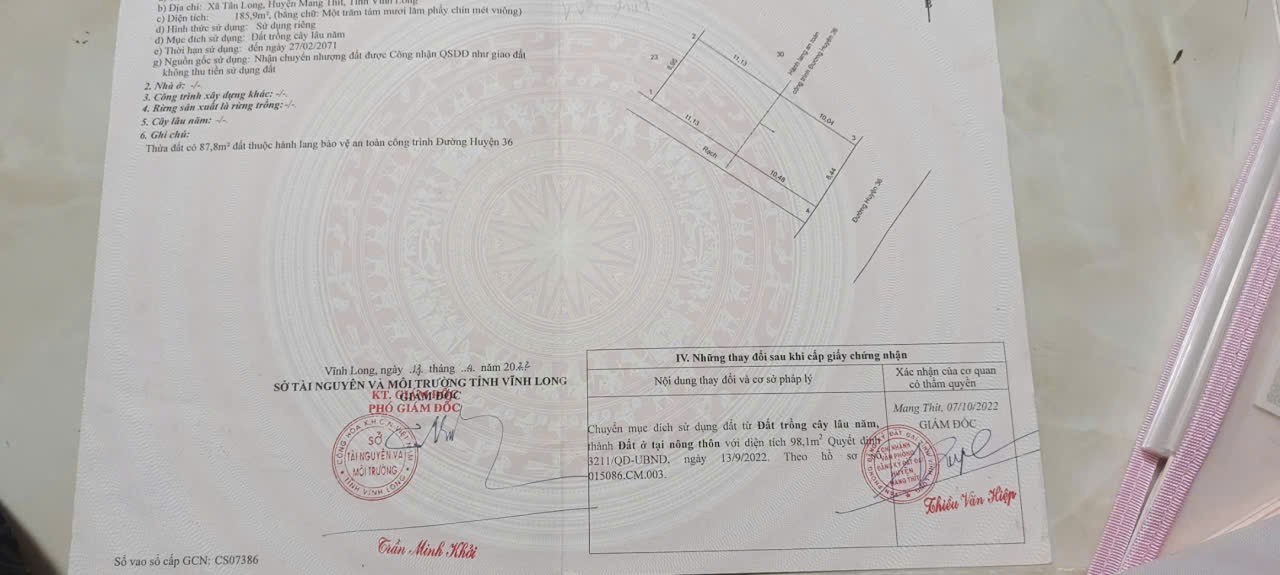 b) Địa chỉ: Xã Tân Long, Huyện Mang Thít, Tỉnh Vĩnh Long
c) Diện tích: 185,9m², (bằng chữ: Một trăm tám mươi lăm phẩy chín mét vuông)
d) Hình thức sử dụng: Sử dụng riêng
đ) Mục đích sử dụng: Đất trồng cây lâu năm
e) Thời hạn sử dụng: đến ngày 27/02/2071
g) Nguồn gốc sử dụng: Nhận chuyển nhượng đất được Công nhận QSDĐ như giao đất
không thu tiền sử dụng đất
2. Nhà ở: -/-
3. Công trình xây dựng khác: -/-.
4. Rừng sản xuất là rừng trồng:-/-.
5. Cây lâu năm: -/-
6. Ghi chú:
Thửa đất có 87,8m² đất thuộc hành lang bảo vệ an toàn công trình Đường Huyện 36
B
23
2
11,13
30
Hành lang an toàn
công trình Đường Huyện 36
8,95
1
11,13
10,04
3
Rạch
10,48
8,44
4
Đường Huyện 36
Vĩnh Long, ngày tháng năm 20
SỞ TÀI NGUYÊN VÀ MÔI TRƯỜNG TỈNH VĨNH LONG
GIÁM ĐỐC
KT. GIÁM ĐỐC
PHÓ GIÁM ĐỐC
CỘNG HÒA X.H.C.N VIỆT NAM
SỞ
TÀI NGUYÊN VÀ
MÔI TRƯỜNG
TỈNH VĨNH LONG
Trần Minh Khởi
Số vào sổ cấp GCN: CS07386
IV. Những thay đổi sau khi cấp giấy chứng nhận
Nội dung thay đổi và cơ sở pháp lý
Xác nhận của cơ quan
có thẩm quyền
Chuyển mục đích sử dụng đất từ Đất trồng cây lâu năm,
thành Đất ở tại nông thôn với diện tích 98,1m² Quyết định
3211/QD-UBND, ngày 13/9/2022. Theo hồ sơ số
015086.CM.003.
Mang Thít, 07/10/2022
GIÁM ĐỐC
CHI NHÁNH
VĂN PHÒNG
ĐĂNG KÝ ĐẤT ĐAI
HUYỆN
MANG THÍT
Thiều Văn Hiệp